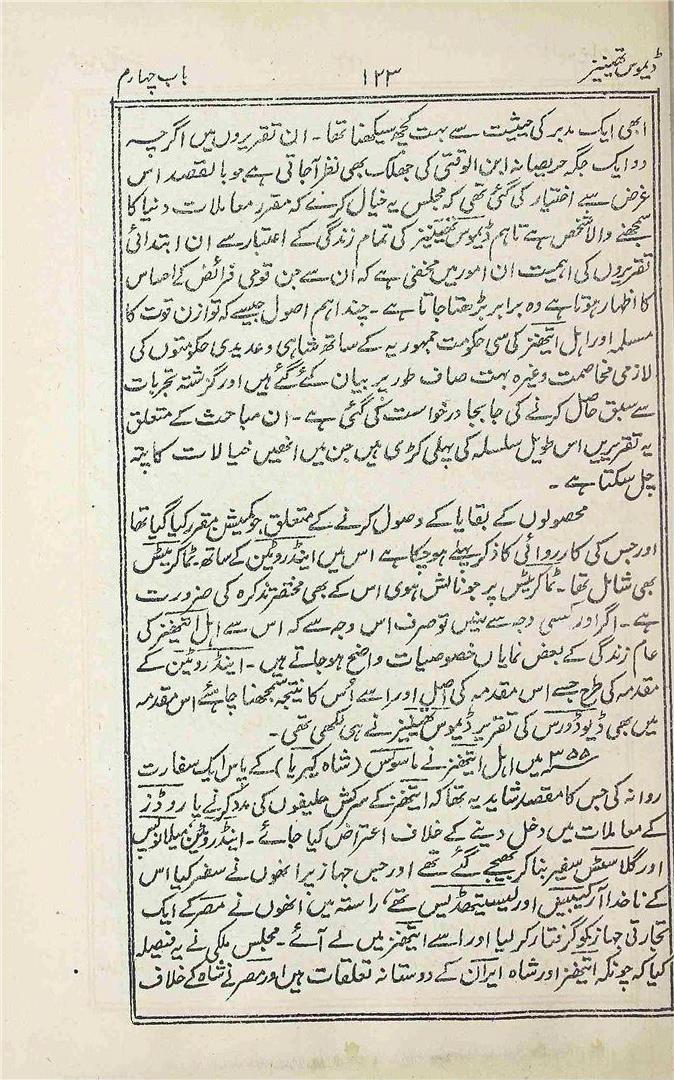 ڈیموس تھینیز ۱۲۳ باب چہارم
ابھی ایک مدبر کی حیثیت سے بہت کچھ سیکھنا تھا ۔ ان تقریروں میں اگرچہ
دو ایک جگہ حریصانہ ابن الوقتی کی جھلک بھی نظر آجاتی ہے جو بالقصد اس
غرض سے اختیار کی گئی تھی کہ مجلس یہ خیال کرنے کہ مقرر معاملات دنیا کا
سمجھنے والا شخص ہے تاہم ڈیموس تھینیز کی تمام زندگی کے اعتبار سے ان ابتدائی
تقریروں کی اہمیت ان امور میں مخفی ہے کہ ان سے جن قومی فرائض کے احساس
کا اظہار ہوتا ہے وہ برابر بڑھتا جاتا ہے ۔ چند اہم اصول جیسے کہ توازن قوت کا
مسئلہ اور اہل ایتھنز کی سی حکومت جمہوریہ کے ساتھ شاہی و عدیدی حکومتوں کی
لازمی مخاصمت وغیرہ بہت صاف طور پر بیان کئے گئے ہیں اور گزشتہ تجربات
سے سبق حاصل کرنے کی جابجا درخواست کی گئی ہے ۔ ان مباحث کے متعلق
یہ تقریریں اس طویل سلسلہ کی پہلی کڑی ہیں جن میں انھیں خیالات کا پتہ
چل سکتا ہے ۔
محصولوں کے بقایا کے وصول کرنے کے متعلق جو کمیشن مقرر کیا گیا تھا
اور جس کی کارروائی کا ذکر پہلے ہوچکا ہے اس میں اینڈروٹین کے ساتھ ٹماکریٹس
بھی شامل تھا ۔ ٹماکریٹس پر جو نالش ہوی اس کے بھی مختصر تذکرہ کی ضرورت
ہے ۔ اگر اور کسی وجہ سے نہیں تو صرف اس وجہ سے کہ اس سے اہل ایتھنز کی
عام زندگی کے بعض نمایاں خصوصیات واضح ہوجاتے ہیں ۔ اینڈروٹین کے
مقدمہ کی طرح جسے اس مقدمہ کی اصل اور اسے اُس کا نتیجہ سمجھنا چاہئے اس مقدمہ
میں بھی ڈیوڈورس کی تقریر ڈیموس تھینیز نے ہی لکھی تھی ۔
۳۵۵ میں اہل ایتھنز نے ماسولس (شاہ کیریا) کے پاس ایک سفارت
روانہ کی جس کا مقصد شاید یہ تھا کہ ایتھنز کے سرکش حلیفوں کی مدد کرنے یا روڈز
کے معاملات میں دخل دینے کے خلاف اعتراض کیا جائے ۔ اینڈروٹین میلانوپس
اور گلاسٹس سفیر بنا کر بھیجے گئے تھے اور جس جہاز پر انھوں نے سفر کیا اس
کے ناخدا آرکیبیس اور لیسیتھڈیس تھے، راستہ میں انھوں نے مصر کے ایک
تجارتی جہاز کو گرفتار کرلیا اور اسے ایتھنز میں لے آئے ۔ مجلس ملکی نے یہ فیصلہ
کیا کہ چونکہ ایتھنز اور شاہ ایران کے دوستانہ تعلقات ہیں اور مصر نے شاہ کے خلاف